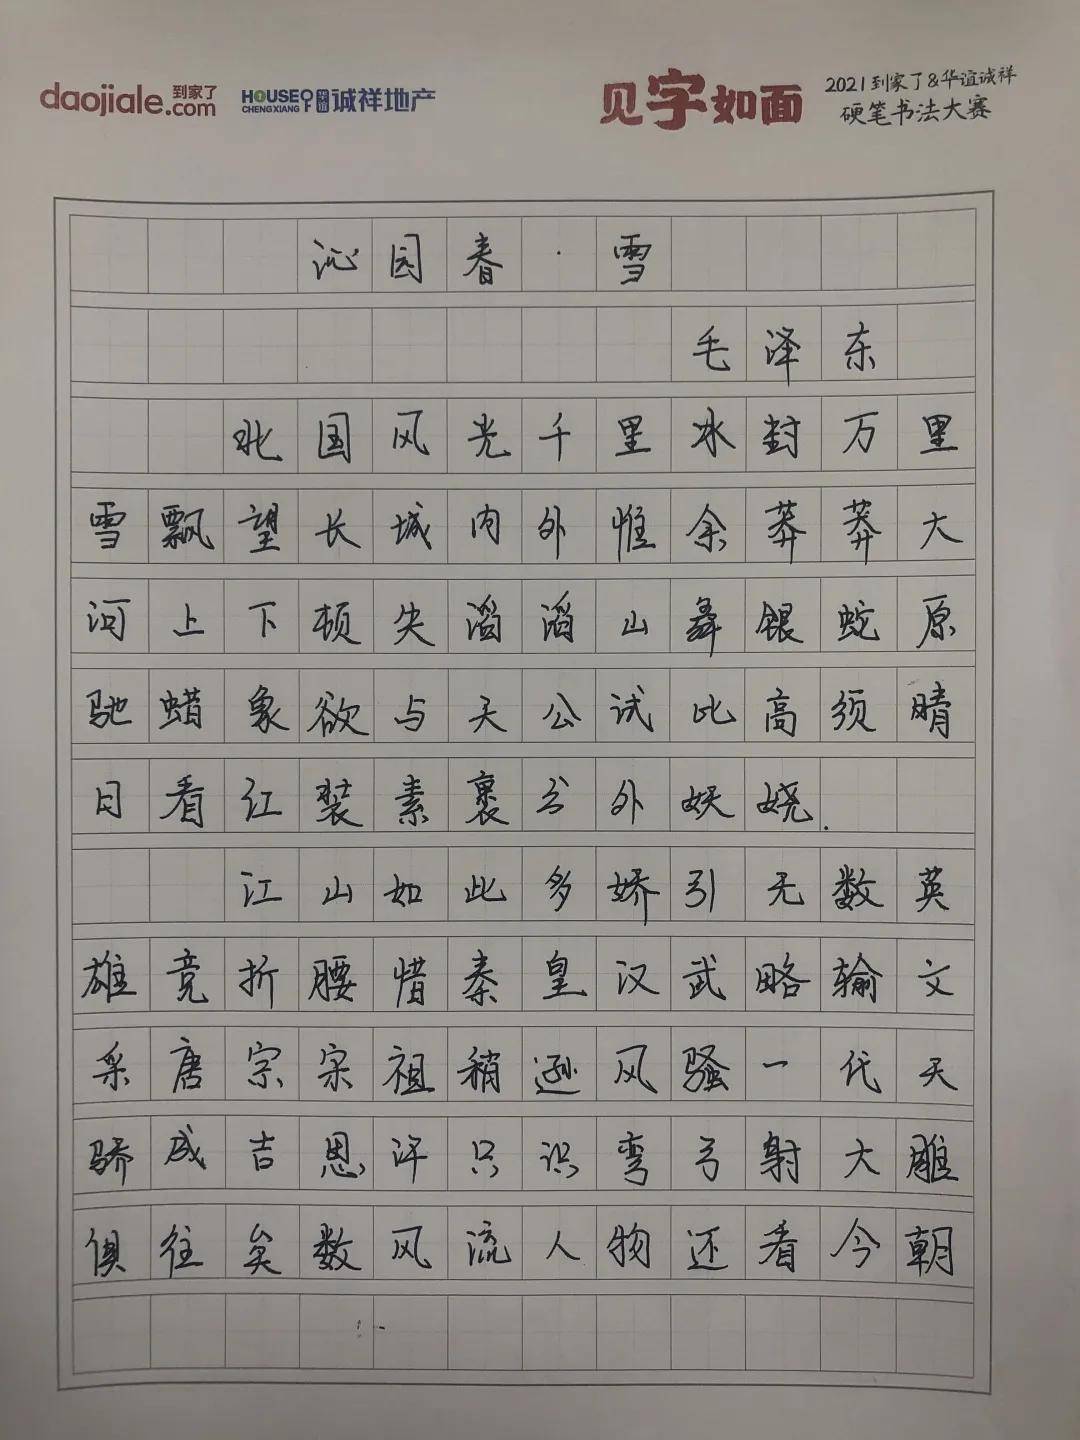 daojiale.com 到家了 HOUSE CHENGXIANG 华谊 诚祥地产 见字如面 2021到家了&华谊诚祥
硬笔书法大赛
沁园春·雪
毛泽东
北国风光千里冰封万里
雪飘望长城内外惟余莽莽大
河上下顿失滔滔山舞银蛇原
驰蜡象欲与天公试比高须晴
日看红装素裹分外妖娆.
江山如此多娇引无数英
雄竞折腰惜秦皇汉武略输文
采唐宗宋祖稍逊风骚一代天
骄成吉思汗只识弯弓射大雕
俱往矣数风流人物还看今朝